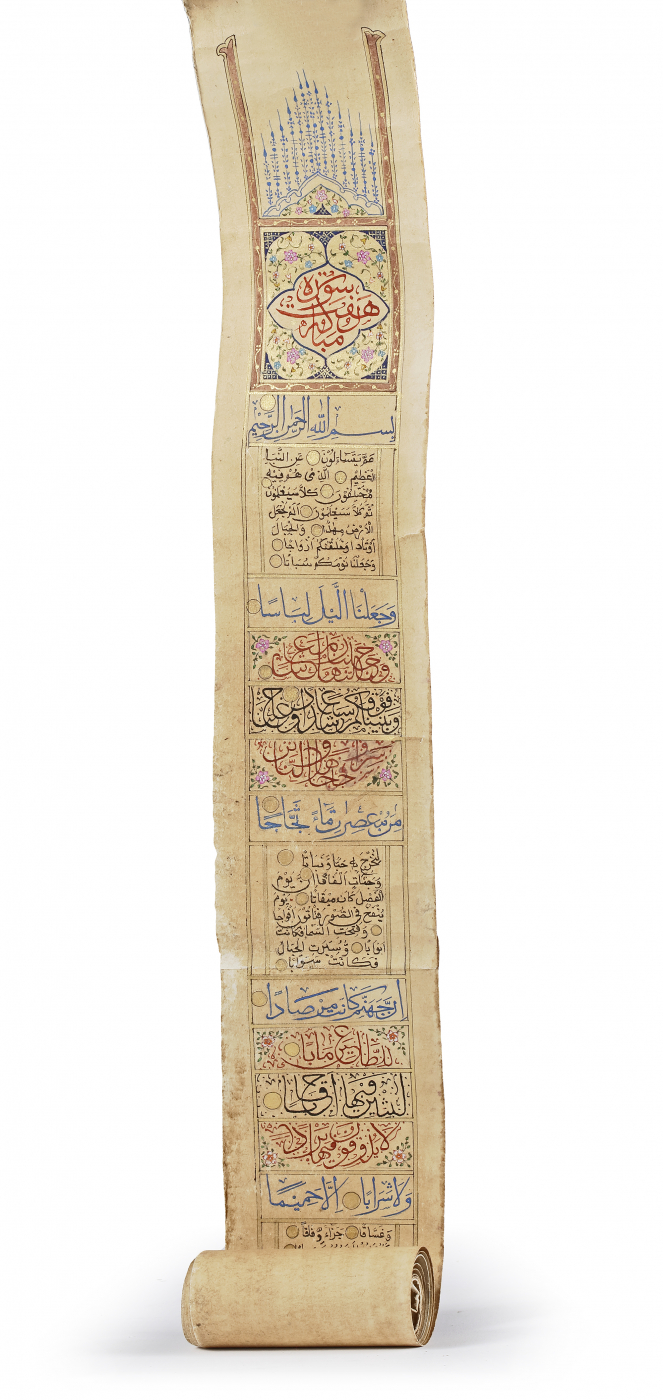 سورة
هفت
مباركه
بسم الله الرحمن الرحيم
عم يتساءلون عن النبا
العظيم الذى هم فيه
مختلفون كلا سيعلمون
ثم كلا سيعلمون الم نجعل
الارض مهدا والجبال
اوتادا وخلقنكم ازواجا
وجعلنا نومكم سباتا
وَجَعَلْنَا الَّيْلَ لِبَاسًا
وجعلنا النهار معاشا
وبنينا فوقكم سبعا شدادا وجعلنا
سراجا وهاجا وانزلنا
من المعصرات ماءً ثجاجا
لنخرج به حبا ونباتا
وجنات الفافا ان يوم
الفصل كان ميقاتا يوم
ينفخ في الصور فتاتون افواجا
وفتحت السماء فكانت
ابوابا وسيرت الجبال
فكانت سرابا
ان جهنم كانت مرصادا
للطاغين مابا
لبثين فيها احقابا
لا يذوقون فيها بردا
ولا شرابا الا حميما
وغساقا جزاء وفاقا